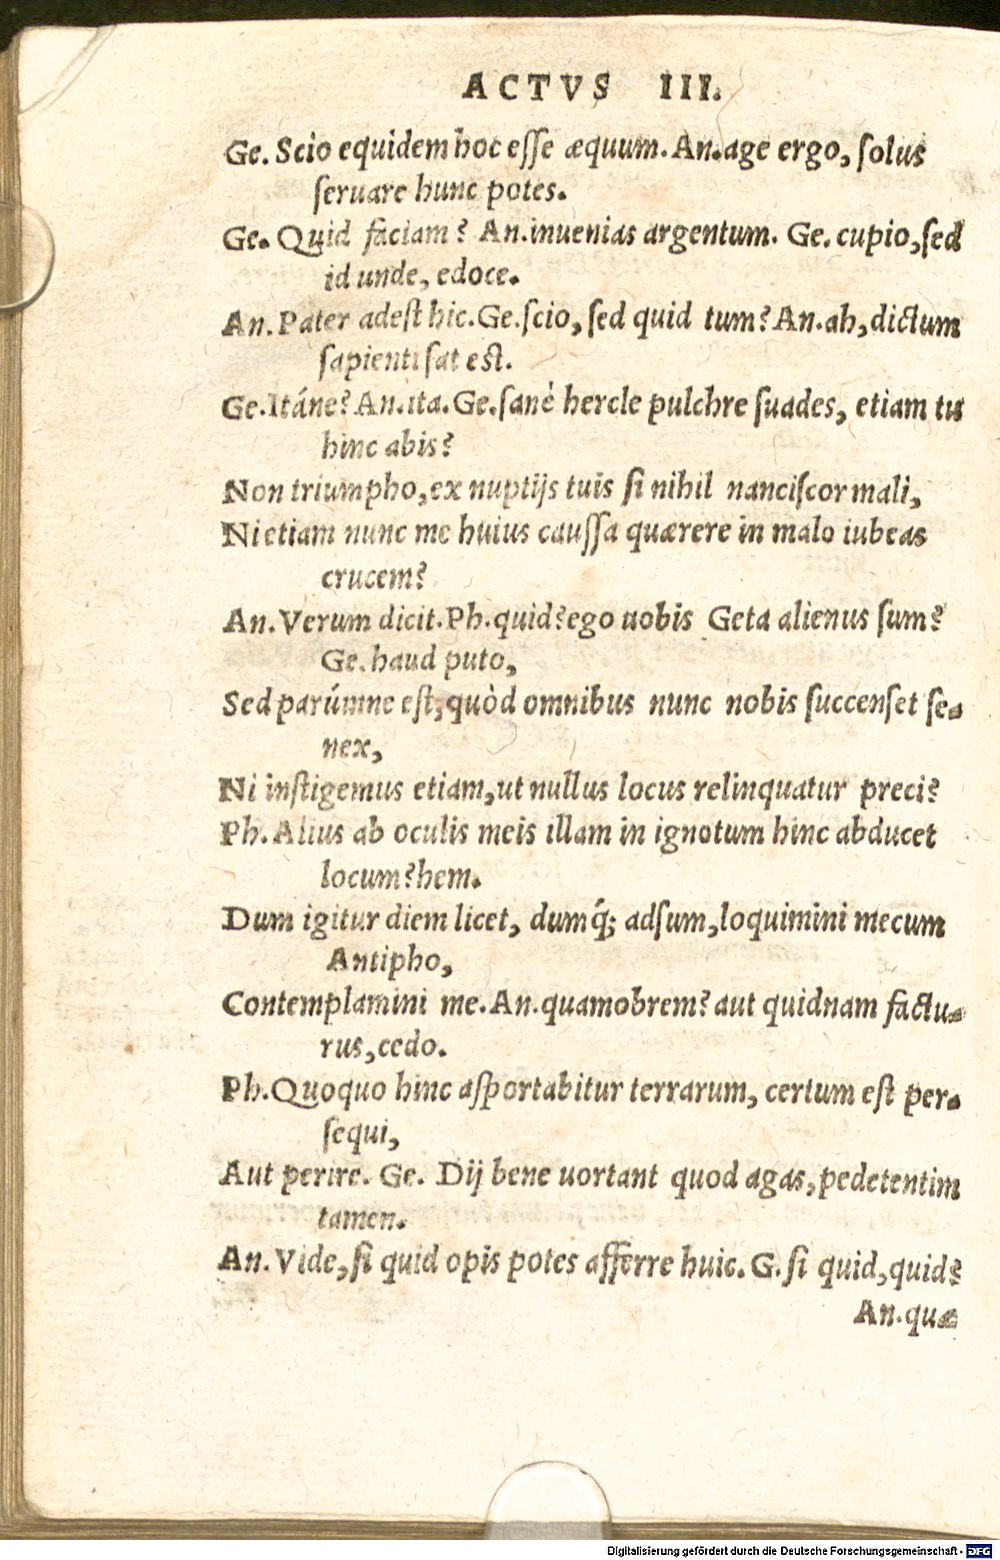 ACTVS III.
Ge. Scio equidem hoc eſſe æquum. An. age ergo, ſolus
ſeruare hunc potes.
Ge. Quid faciam? An. inuenias argentum. Ge. cupio, ſed
id unde, edoce.
An. Pater adeſt hic. Ge. ſcio, ſed quid tum? An. ah, dictum
ſapienti ſat eſt.
Ge. Itáne? An. ita. Ge. ſanè hercle pulchre ſuades, etiam tu
hinc abis?
Non triumpho, ex nuptijs tuis ſi nihil nanciſcor mali,
Ni etiam nunc me huius cauſſa quærere in malo iubeas
crucem?
An. Verum dicit. Ph. quid? ego uobis Geta alienus ſum?
Ge. haud puto,
Sed parúmne eſt, quòd omnibus nunc nobis ſuccenſet ſe-
nex,
Ni inſtigemus etiam, ut nullus locus relinquatur preci?
Ph. Alius ab oculis meis illam in ignotum hinc abducet
locum? hem.
Dum igitur diem licet, dumq́; adſum, loquimini mecum
Antipho,
Contemplamini me. An. quamobrem? aut quidnam factu-
rus, cedo.
Ph. Quoquo hinc aſportabitur terrarum, certum eſt per-
ſequi,
Aut perire. Ge. Dij bene uortant quod agas, pedetentim
tamen.
An. Vide, ſi quid opis potes afferre huic. G. ſi quid, quid?
An. quæ
Digitalisierung gefördert durch die Deutsche Forschungsgemeinschaft - DFG